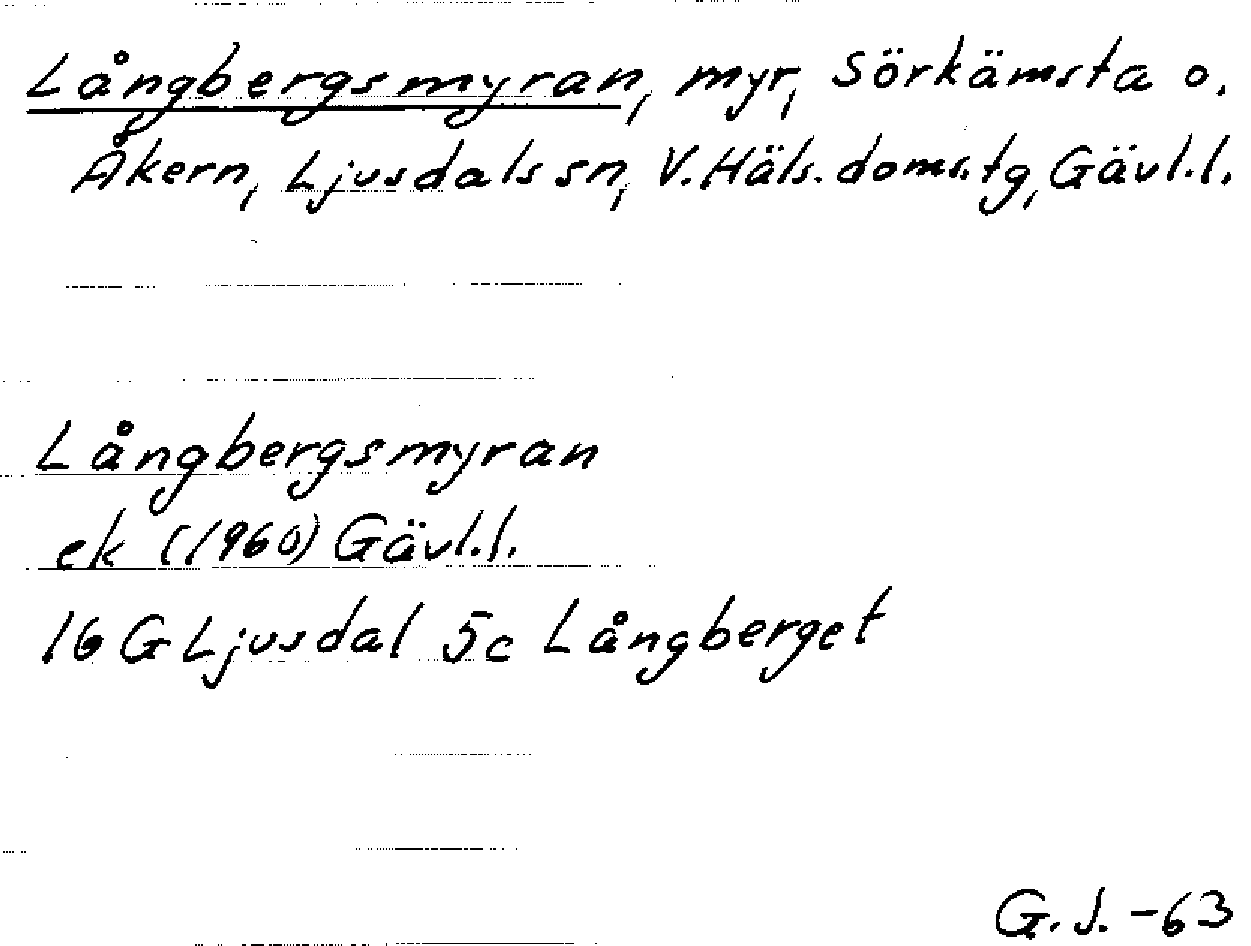 Långbergsmyran, myr, Sörkämsta o.
Åkern, Ljusdals sn, V. Häls. doms.tg, Gävl.l.
Långbergsmyran
ek (1960) Gävl.l.
16 G Ljusdal 5c Långberget
G. J. -63